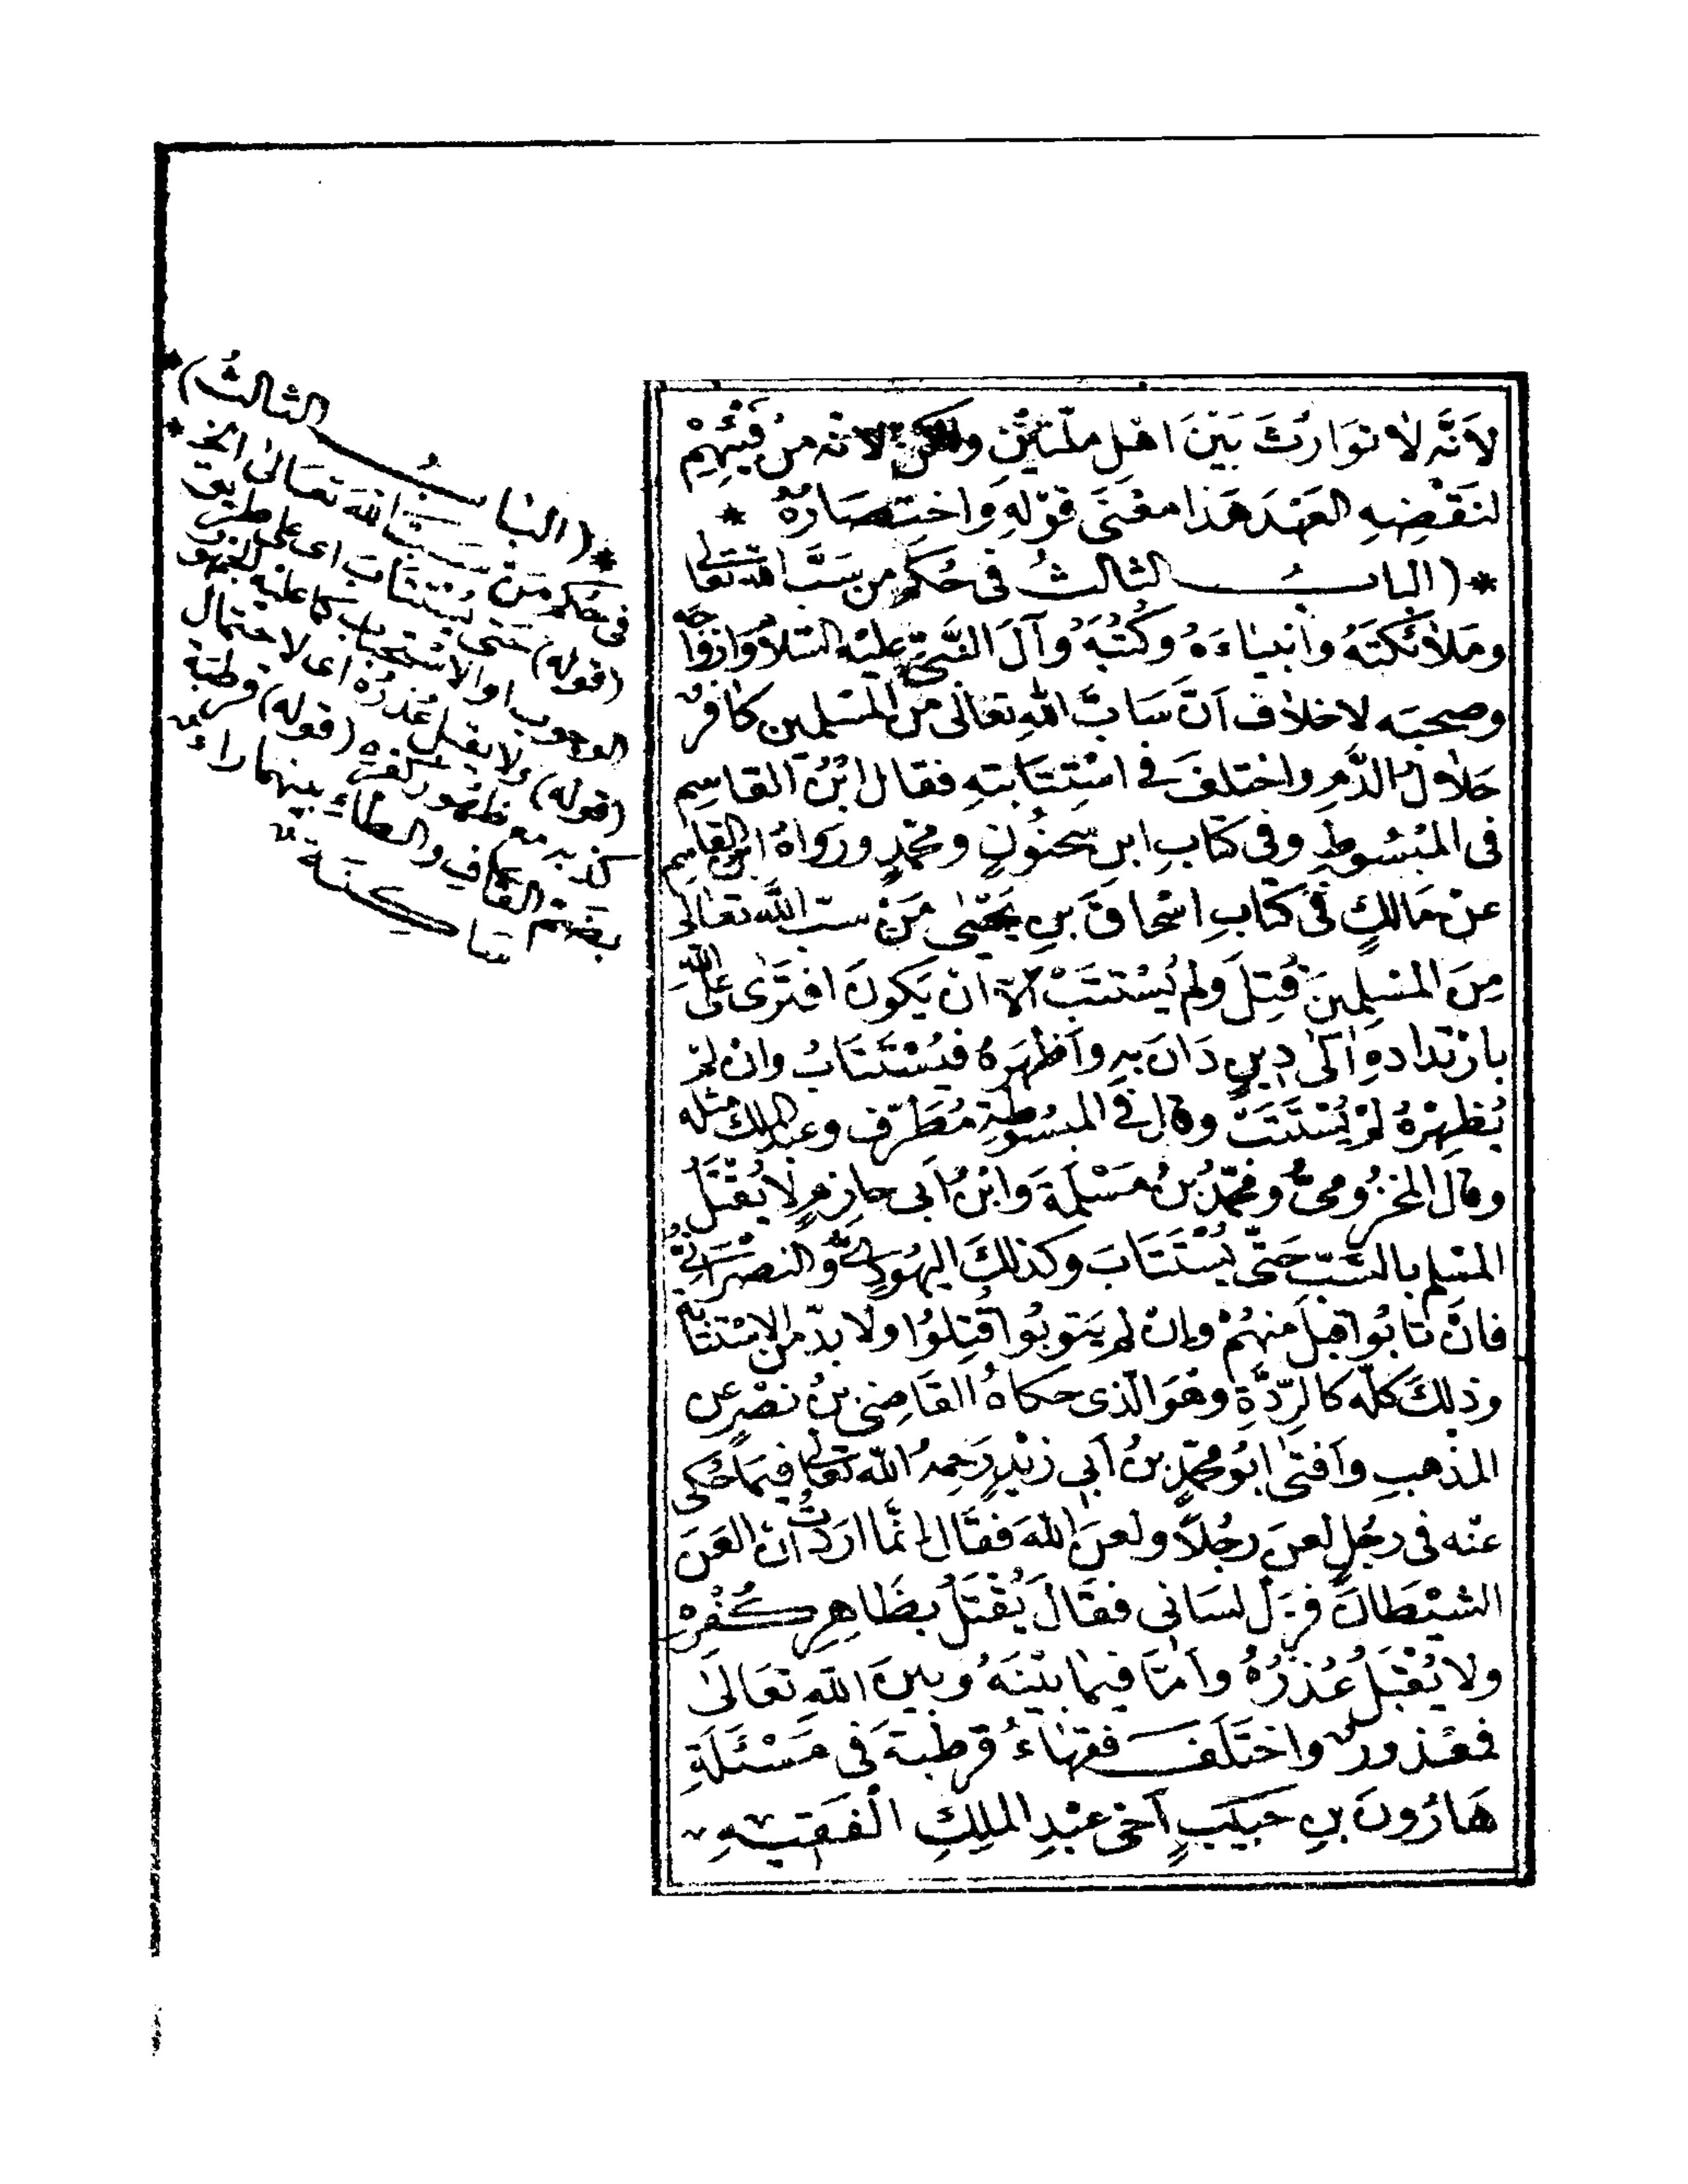 لِأَنَّهُ لَا تَوَارُثَ بَيْنَ أَهْلِ مِلَّتَيْنِ ولكن لانه مِنْ فَيْئِهِمْ
لنَقْضِهِ العَهْدَ هَذَا مَعْنَى قَوْلِهِ وَاخْتِصَارُهُ *
* (الباب الثالثُ فى حُكْمِ من سَبَّ الله تعالى
ومَلَائكَتَهُ وانبياءَهُ وكُتُبَهُ وآلَ النَّبِيِّ عليْهِ السّلامُ وازْوَاجَهُ
وصحبَه لا خلاف اَنَّ سَابَّ اللهِ تعَالى مِنَ المسْلِمِين كَافرٌ
حَلالُ الدَّمِ واختلفَ فى اسْتِتَابَتِهِ فقال ابْنُ القاسِمِ
فى المبْسُوطِ وفى كتابِ ابنِ سَحْنُونٍ ومحمّدٍ ورَوَاهُ ابن القاسِم
عنْ مَالكٍ فى كتَابِ اسْحاقَ بنِ يَحْيَى مَنْ سبّ اللهَ تعَالى
مِنَ المسْلِمِينَ قُتِلَ ولم يُسْتَتَبْ الّا انْ يَكونَ افتَرَى على الله
بارْتِدَادِهِ الَى دِينٍ دَانَ بِهِ وأظْهَرَهُ فيُسْتَتَابُ وانْ لمْ
يُظْهِرْهُ لمْ يُسْتَتَبْ وقال فى المبسُوطةِ مُطَرِّف وعبد الملك مثله
وقالَ المخزُومىُّ ومحمّدُ بنُ مَسْلَمَةَ وَابْنُ ابى حازِمٍ لا يُقْتَلُ
المسْلِم بالسَّبّ حَتَّى يُسْتَتَابَ وكذلكَ اليهُودِىُّ والنصْرَانِىُّ
فانْ تابُوا قبلَ منهُمْ وإن لم يَتوبُوا قُتِلُوا ولا بدّ من الِاسْتتَابَةِ
وذلكَ كلّه كالرِّدَّةِ وهُوَ الّذى حكاهُ القَاضِى بنُ نصْرٍ عن
المذْهبِ وأفتى ابُو محمّدِ بنُ أبى زَيْدٍ رَحِمَهُ اللهُ تعالى فيمَا حُكِى
عنْه فى رجُلٍ لعنَ رجُلاً ولعنَ اللهَ فقَال إنّما اردْتُ ان العَنَ
الشيْطَانَ فزَلّ لسَانى فقَالَ يُقْتَلُ بظَاهِرِ كُفْرِهِ
ولا يُقْبَلُ عُذْرُهُ وامَّا فيما بيْنَهُ وبينَ اللهِ تعَالَى
فمعْذورٌ واختَلَفَ فقهاءُ قرطبةَ فى مَسْئَلَةِ
هَارُونَ بنِ حَبيبٍ أخى عبْدِ الملِكِ الْفَقِيهِ
*(البَابُ الثالثُ)*
فى حُكم مَنْ سَبَّ اللهَ تعَالى الخ *
(قوله) حَتى يُسْتَتَابَ اى على طريق
الوجوب او الاسْتحبَاب كما عليْه الجمهو
(قوله) ولا يقبل عُذْرُه اى لاحتمال
كذبه مع ظهور كفره (قوله) قرطبَة
بضم القاف والطاء بينهما راء
سَاكِنَة